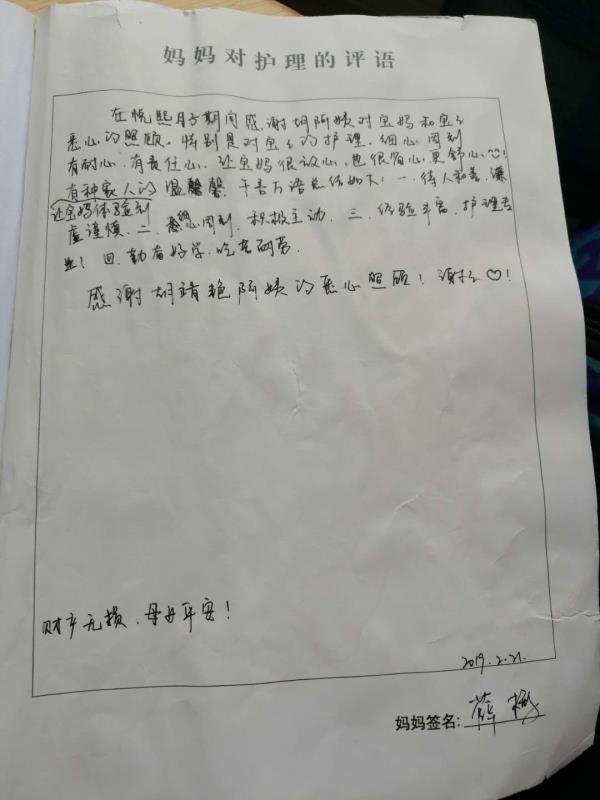 妈妈对护理的评语
在悦熙月子期间感谢胡阿姨对宝妈和宝宝
悉心的照顾。特别是对宝宝的护理,细心周到
有耐心,有责任心,让宝妈很放心,也很省心,更舒心。
让宝妈体验到
有种家人的温馨。千言万语总结如下:一、待人和善,谦
虚谨慎。二、细心周到,积极主动。三、经验丰富,护理专
业!四、勤奋好学,吃苦耐劳。
感谢胡靖艳阿姨的悉心照顾!谢谢♡!
财产无损,母女平安!
2019.2.21.
妈妈签名:薛